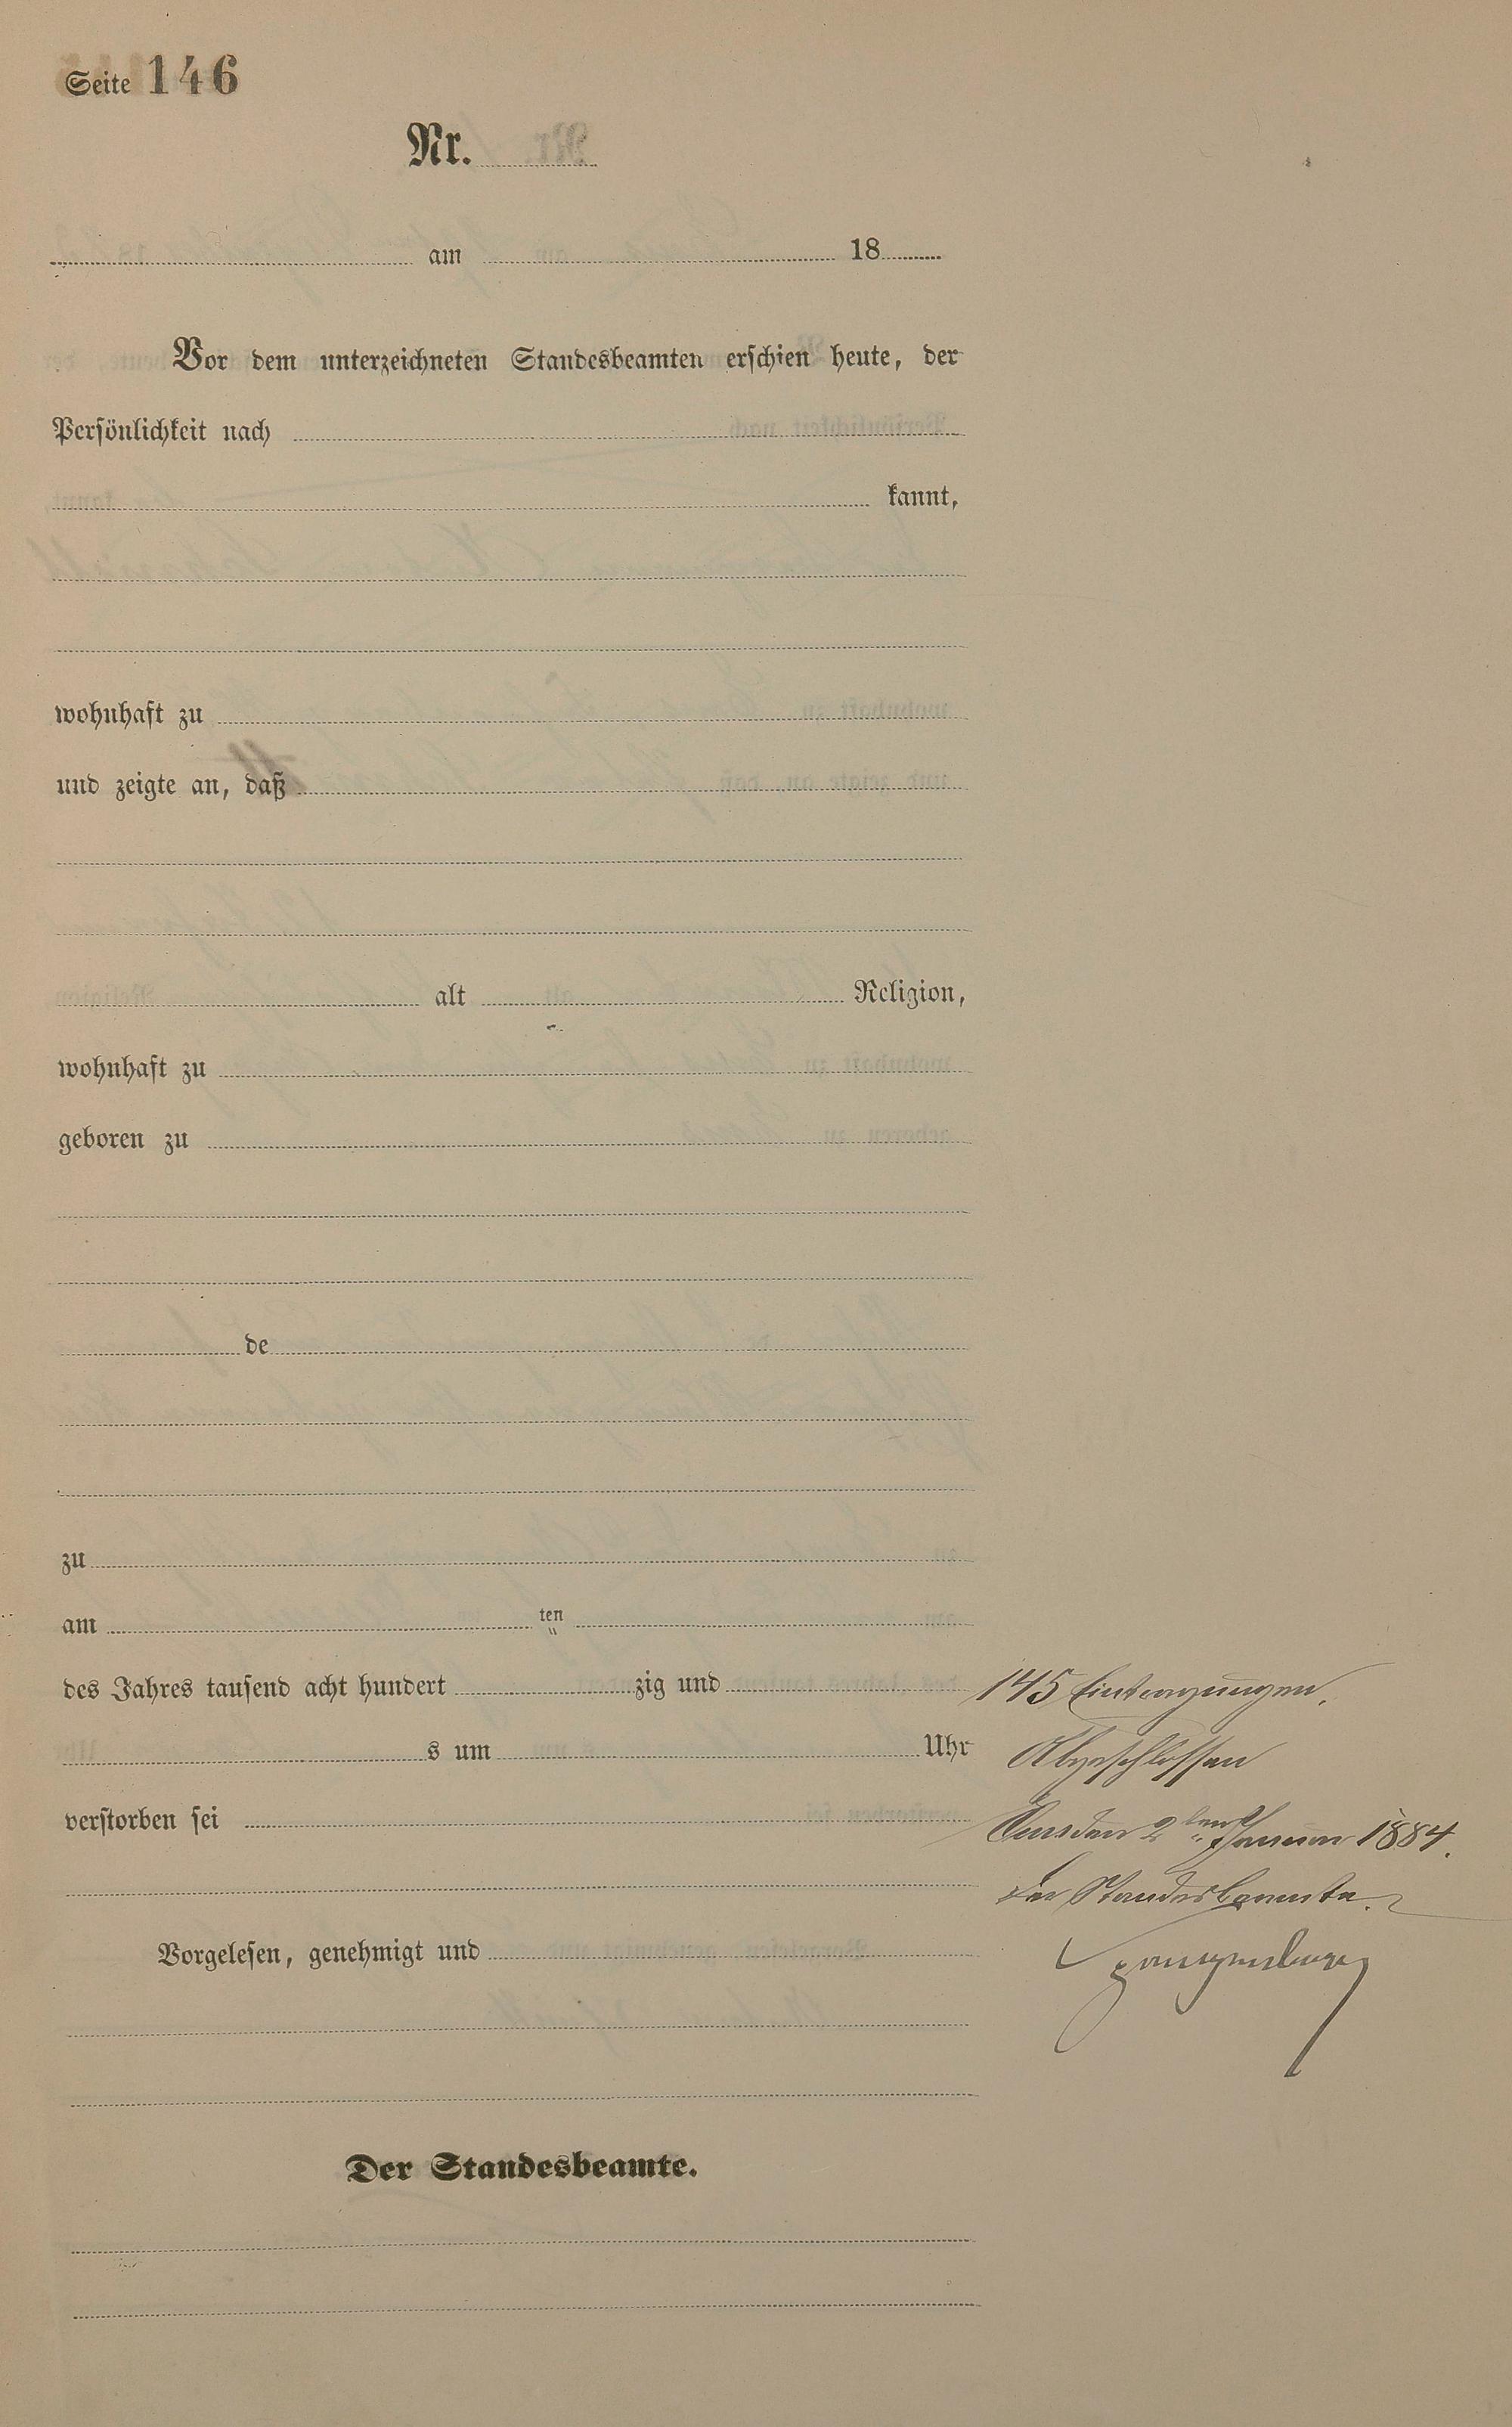 Seite 146
Nr.
am 18
Vor dem unterzeichneten Standesbeamten erschien heute, der
Persönlichkeit nach
kannt,
wohnhaft zu
und zeigte an, daß
alt Religion,
wohnhaft zu
geboren zu
de
zu
am ten
des Jahres tausend acht hundert zig und
s um Uhr
verstorben sei
Vorgelesen, genehmigt und
Der Standesbeamte.
145 Eintragungen.
Abgeschlossen
den 2ten Januar 1884.
Der Standesbeamte.